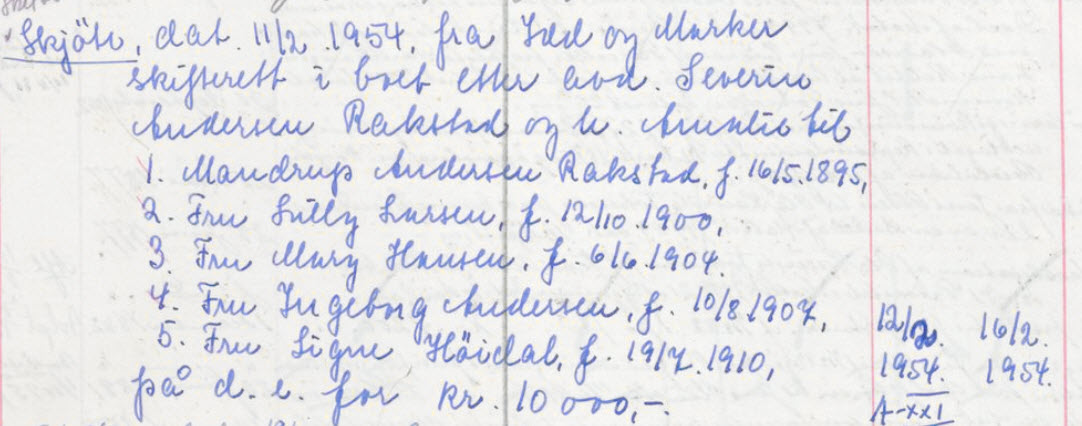 Skjöte, dat. 11/2 1954, fra Idd og Marker
skifterett i boet etter avd. Severin
Andersen Rakstad og h. Amalie til
1. Mandrup Andersen Rakstad, f. 16/5.1895,
2. Fru Lilly Larsen, f. 12/10.1900,
3. Fru Mary Hansen, f. 6/6.1904.
4. Fru Ingeborg Andersen, f. 10/8.1907, 12/2. 16/2.
5. Fru Signe Höidal, f. 19/7.1910, 1954. 1954.
på d. e. for kr. 10 000,-. A-XXI